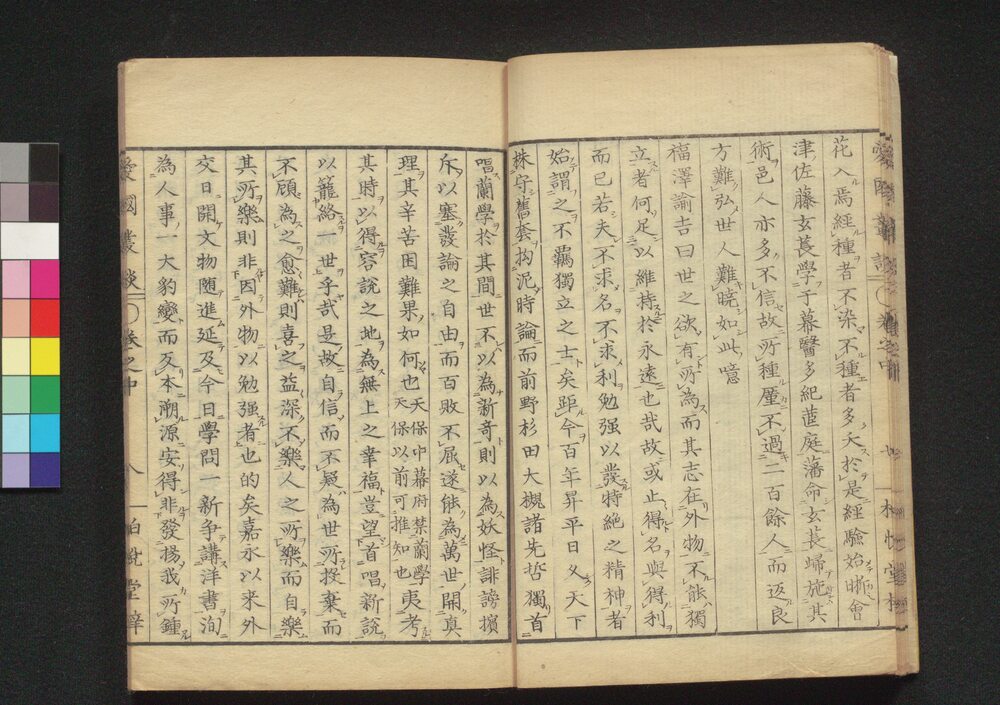 花入焉經種者不染不種者多夭於是經驗始晣會
津佐藤玄萇學于幕醫多紀茝庭藩命玄萇歸施其
術邑人亦多不信故所種厪不過二百餘人而返良
方難弘世人難曉如此噫
福澤諭吉曰世之欲有所為而其志在外物不能獨
立者何足以維持於永遠也哉故或止得名與得利
而已若夫不求名不求利勉强以發特絕之精神者
始謂之不羈獨立之士矣距今百年昇平日久天下
株守舊套拘泥時論而前野杉田大槻諸先哲獨首
唱蘭學於其間世不以為新奇則以為妖怪誹謗擯
斥以塞發論之自由而百敗不屈遂能為萬世開真
理其辛苦困難果如何也天保中幕府禁蘭學天保以前可推知也夷考
其時以得容說之地為無上之幸福豈望首唱新說
以籠絡一世乎哉是故自信而不疑為世所投棄而
不顧為之愈難則喜之益深不樂人之所樂而自樂
其所樂則非因外物以勉强者也的矣嘉永以来外
交日開文物隨進延及今日學問一新争講洋書洵
為人事一大豹變而反本溯源安得非發揚我所鍾
愛國叢談 後之中 八